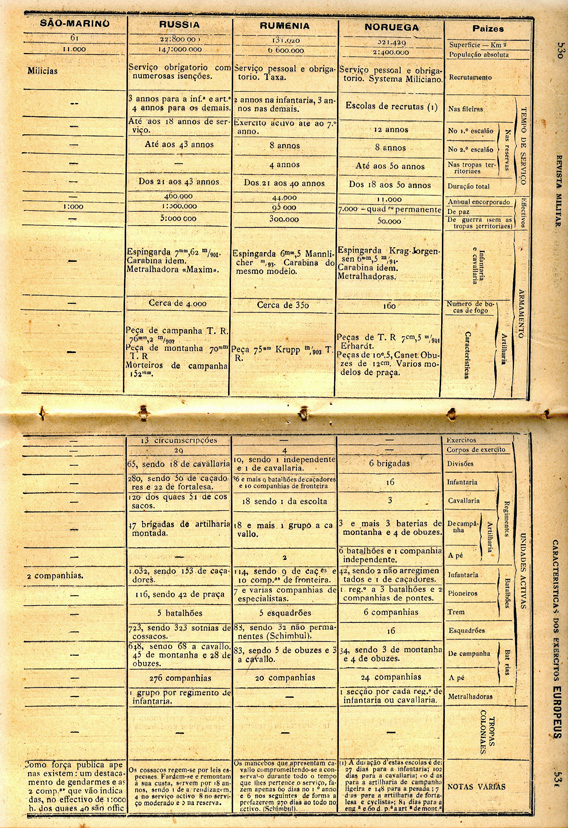 530
REVISTA MILITAR
CARACTERISTICAS DOS EXERCITOS EUROPEUS
531
SÃO-MARINO RUSSIA RUMENIA NORUEGA Paizes
61 22:800 001 131,020 321,429 Superficie — Km²
11.000 147:000.000 6 600.000 2:400.000 População absoluta
Milicias
Serviço obrigatorio com
numerosas isenções.
Serviço pessoal e obriga-
torio. Taxa.
Serviço pessoal e obriga-
torio. Systema Miliciano.
Recrutamento
—
3 annos para a inf.ª e art.ª
4 annos para os demais.
2 annos na infantaria, 3 an-
nos nas demais.
Escolas de recrutas (1)
Nas fileiras
TEMPO DE SERVIÇO
—
Até aos 18 annos de ser-
viço.
Exercito activo até ao 7.º
anno.
12 annos
No 1.º escalão
Nas reservas
— Até aos 43 annos 8 annos 8 annos No 2.º escalão
— — 4 annos Até aos 50 annos
Nas tropas ter-
ritoriaes
— Dos 21 aos 43 annos Dos 21 aos 40 annos Dos 18 aos 50 annos Duração total
— 460.000 44.000 11.000 Annual encorporado
Effectivos
1:000 1:300.000 95 000 7.000 —quad.ºˢ permanente De paz
— 5:000 000 300.000 50.000
De guerra (sem as
tropas territoriaes)
—
Espingarda 7ᵐᵐ,62 ᵐ/901.
Carabina idem.
Metralhadora «Maxim».
Espingarda 6ᵐᵐ,5 Mannli-
cher ᵐ/93. Carabina do
mesmo modelo.
Espingarda Krag-Jorgen-
sen 6ᵐᵐ,5 ᵐ/94.
Carabina idem.
Metralhadoras.
Infantaria
e cavallaria
ARMAMENTO
— Cerca de 4.000 Cerca de 350 160
Numero de bo-
cas de fogo
Artilharia
—
Peça de campanha T. R.
76ᵐᵐ,2 ᵐ/902
Peça de montanha 70ᵐᵐ
T. R
Morteiros de campanha
152ᵐᵐ.
Peça 75ᵐᵐ Krupp ᵐ/903 T.
R.
Peças de T. R 7cm,5 ᵐ/901
Erhardt.
Peças de 10ᶜ,5, Canet. Obu-
zes de 12cm. Varios mo-
delos de praça.
Caracteristicas
— 13 circumscripções — — Exercitos
— 29 4 — Corpos de exercito
—
65, sendo 18 de cavallaria
10, sendo 1 independente
e 1 de cavallaria.
6 brigadas
Divisões
UNIDADES ACTIVAS
—
280, sendo 56 de caçado
res e 22 de fortalesa.
36 e mais 9 batalhões de caçadores
e 10 companhias de fronteira
16
Infantaria
Regimentos
—
120 dos quaes 51 de cos
sacos.
18 sendo 1 da escolta
3
Cavallaria
—
17 brigadas de artilharia
montada.
18 e mais 1 grupo a ca-
vallo.
3 e mais 3 baterias de
montanha e 4 de obuzes.
De campa-
nha
Artilharia
— — 2
6 batalhões e 1 companhia
independente.
A pé
2 companhias.
1.032, sendo 153 de caça-
dores.
114, sendo 9 de caçᵉˢ e
10 comp.ᵃˢ de fronteira.
42, sendo 2 não arregimen
tados e 1 de caçadores.
Infantaria
Batalhões
—
116, sendo 42 de praça
7 e varias companhias de
especialistas.
1 reg.º a 3 batalhões e 2
companhias de pontes.
Pioneiros
— 5 batalhões 5 esquadrões 6 companhias Trem
—
723, sendo 323 sotnias de
cossacos.
83, sendo 32 não perma-
nentes (Schimbul).
16
Esquadrões
—
648, sendo 68 a cavallo.
45 de montanha e 28 de
obuzes.
83, sendo 5 de obuzes e 3
a cavallo.
34, sendo 3 de montanha
e 4 de obuzes.
De campanha
Bat rias
— 276 companhias 20 companhias 24 companhias A pé
—
1 grupo por regimento de
infantaria.
—
1 secção por cada reg.º de
infantaria ou cavallaria.
Metralhadoras
— — — —
TROPAS
COLONIAES
Como força publica ape
nas existem: um destaca-
mento de gendarmes e as
2 comp.ᵃˢ que vão indica
das, no effectivo de 1:000
h. dos quaes 40 são offic
Os cossacos regem-se por leis es-
peciaes. Fardem-se e remontam
á sua custa, servem por 18 an-
nos, sendo 1 de a rendizagem,
4 no serviço activo 8 no ser-
viço moderado e 5 na reserva.
Os mancebos que apresentam ca-
vallo compromettendo-se a con-
serval-o durante todo o tempo
que lhes pertence o serviço, fa-
zem apenas 60 dias no 1.º anno
e 6 nos seguintes de forma a
prefazerem 270 dias ao todo no
activo. (Schimbul).
(1) A duração d'estas escolas é de:
27 dias para a infantaria; 102
dias para a cavallaria; 110 d as
para a artilharia de campanha
ligeira e 148 para a pesada 17
d as para a artilharia de fortale-
sa e cyclistas; 84 dias para a
eng.ª e 60 d. p.ª a art ª de mont.ª
NOTAS VARIAS